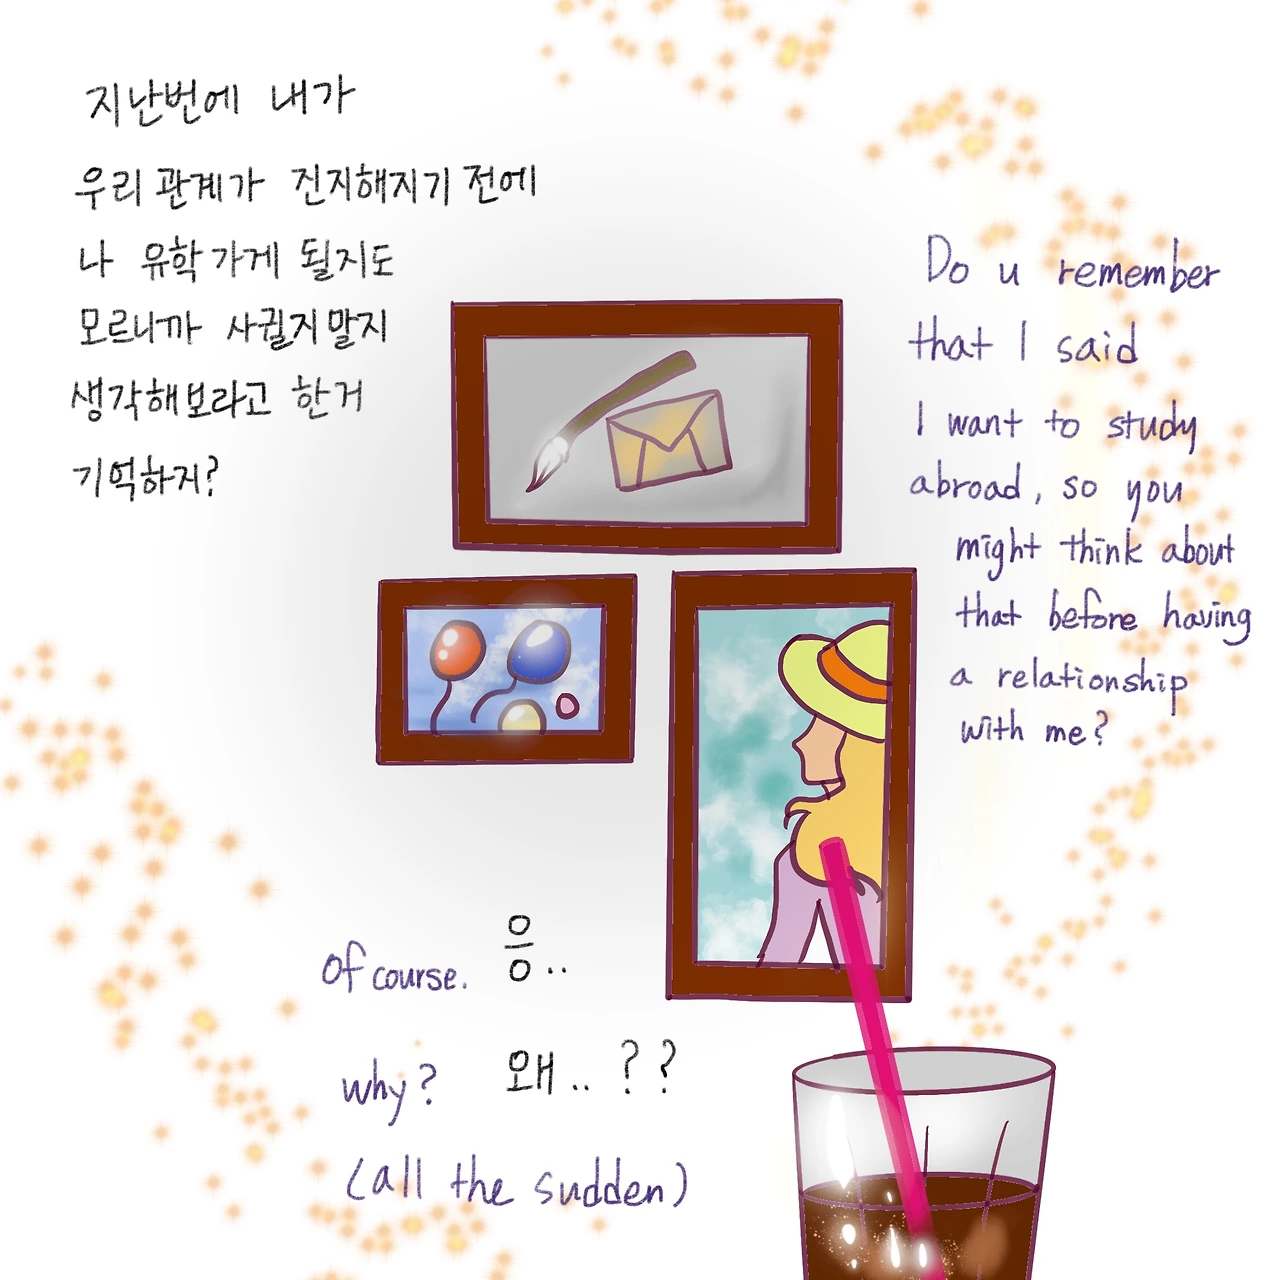 지난번에 내가
우리 관계가 진지해지기 전에
나 유학가게 될지도
모르니까 사귈지말지
생각해보라고 한거
기억하지?
Do u remember
that I said
I want to study
abroad, so you
might think about
that before having
a relationship
with me?
of course. 응..
why? 왜.. ??
(all the sudden)